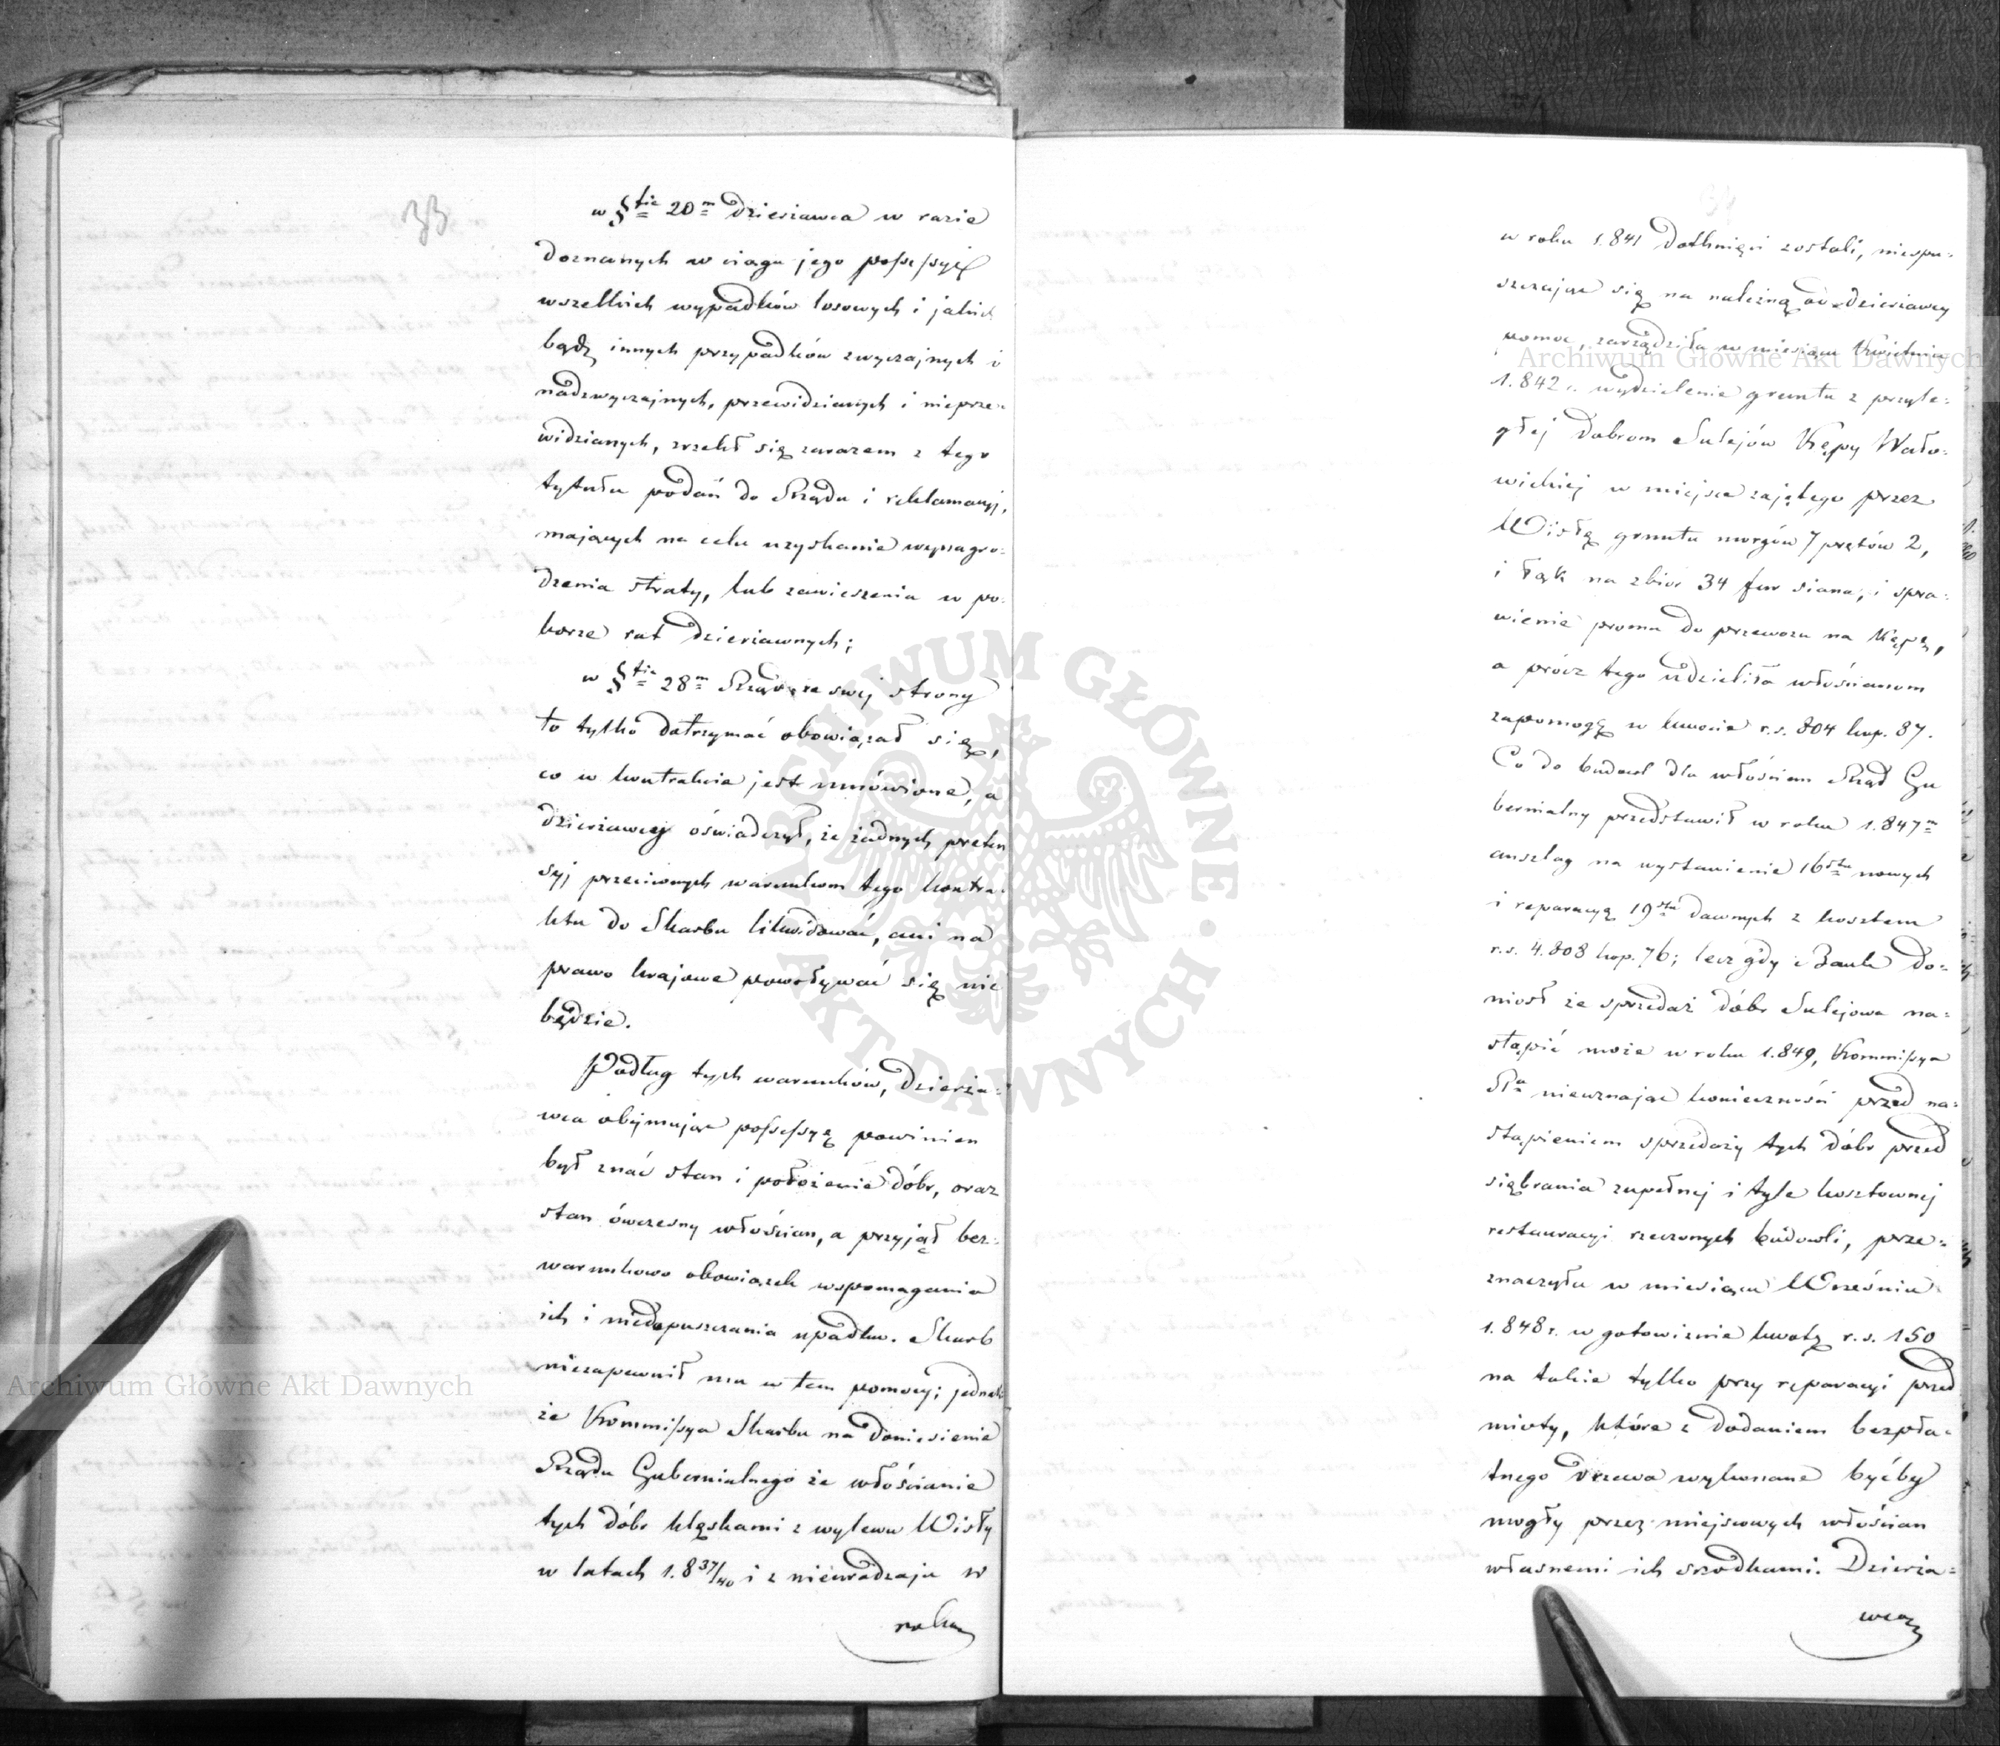 33
w §fie 20m Dzierżawca w razie
doznanych w ciągu jego possessyi
wszelkich wypadków losowych i jakich
bądź innych przypadków zwyczajnych i
nadzwyczajnych, przewidzianych i nieprze-
widzianych, zrzekł się zarazem z tego
tytułu podań do Rządu i reklamacyj,
mających na celu uzyskanie wynagro-
dzenia straty, lub zawieszenia w po-
borze rat dzierżawnych;
w §fie 28m Rząd ze swej strony
to tylko dotrzymać obowiązał się,
co w kontrakcie jest umówione, a
dzierżawcy oświadczył, że żadnych preten
syj przeciwnych warunkom tego kontra-
ktu do Skarbu likwidować, ani na
prawo krajowe powoływać się nie
będzie.
Podług tych warunków, Dzierża-
wca obejmując possessyą powinien
był znać stan i położenie dóbr, oraz
stan ówczesny włościan, a przyjął bez-
warunkowo obowiązek wspomagania
ich i niedopuszczania upadku. Skarb
niezapewnił mu w tem pomocy; jednak
że Kommissya Skarbu na doniesienie
Rządu Gubernialnego że włościanie
tych dóbr klęskami z wylewu Wisły
w latach 1.837/40 i z nieurodzaju w
roku
w roku 1.841 dotknięci zostali, niespu-
szczając się na należną od dzierżawcy
pomoc, zarządziła w miesiącu Kwietniu
1.842 r. wydzielenie gruntu z przyle-
głej dobrom Sulejów Kępy Wało-
wickiej w miejsce zajętego przez
Wisłę gruntu morgów 7 prętów 2,
i łąk na zbiór 34 fur siana, i spra-
wienie promu do przewozu na Kępę,
a prócz tego udzieliła włościanom
zapomogę w kwocie r.s. 804 kop. 87.
Co do budowl dla włościan Rząd Gu
bernialny przedstawił w roku 1.847m
anszlag na wystawienie 16stu nowych
i reparacyą 19stu dawnych z kosztem
r.s. 4.808 kop. 76; lecz gdy Bank do-
niósł że sprzedaż dóbr Sulejowa na-
stąpić może w roku 1.849, Kommissya
nieuznając konieczności przed na-
stąpieniem sprzedaży tych dóbr przed
siębrania zupełnej i tyle kosztownej
restauracyi rzeczonych budowli, prze-
znaczyła w miesiącu Wrześniu
1.848 r. w gotowiźnie kwotę r.s. 150
na takie tylko przy reparacyi przed
mioty, które z dodaniem bezpła-
tnego drzewa wykonane byćby
mogły przez miejscowych włościan
własnemi ich środkami. Dzierża-
wca
Archiwum Główne Akt Dawnych
Archiwum Główne Akt Dawnych
ARCHIWUM GŁÓWNE
AKT DAWNYCH